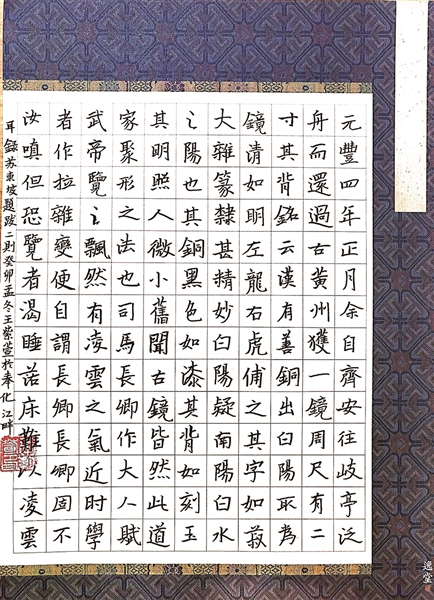 元豐四年正月余自齊安往岐亭泛
舟而還過古黃州獲一鏡周尺有二
寸其背銘云漢有善銅出白陽取為
鏡清如明左龍右虎俌之其字如菽
大雜篆隸甚精妙白陽疑南陽白水
之陽也其銅黑色如漆其背如刻玉
其明照人微小舊聞古鏡皆然此道
家聚形之法也司馬長卿作大人賦
武帝覽之飄然有凌雲之氣近時學
者作拉雜變便自謂長卿長卿固不
汝嗔但恐覽者渴睡落床難以凌雲
耳錄苏東坡題跋二則癸卯孟冬王紫萱於奉化江畔
逸堂